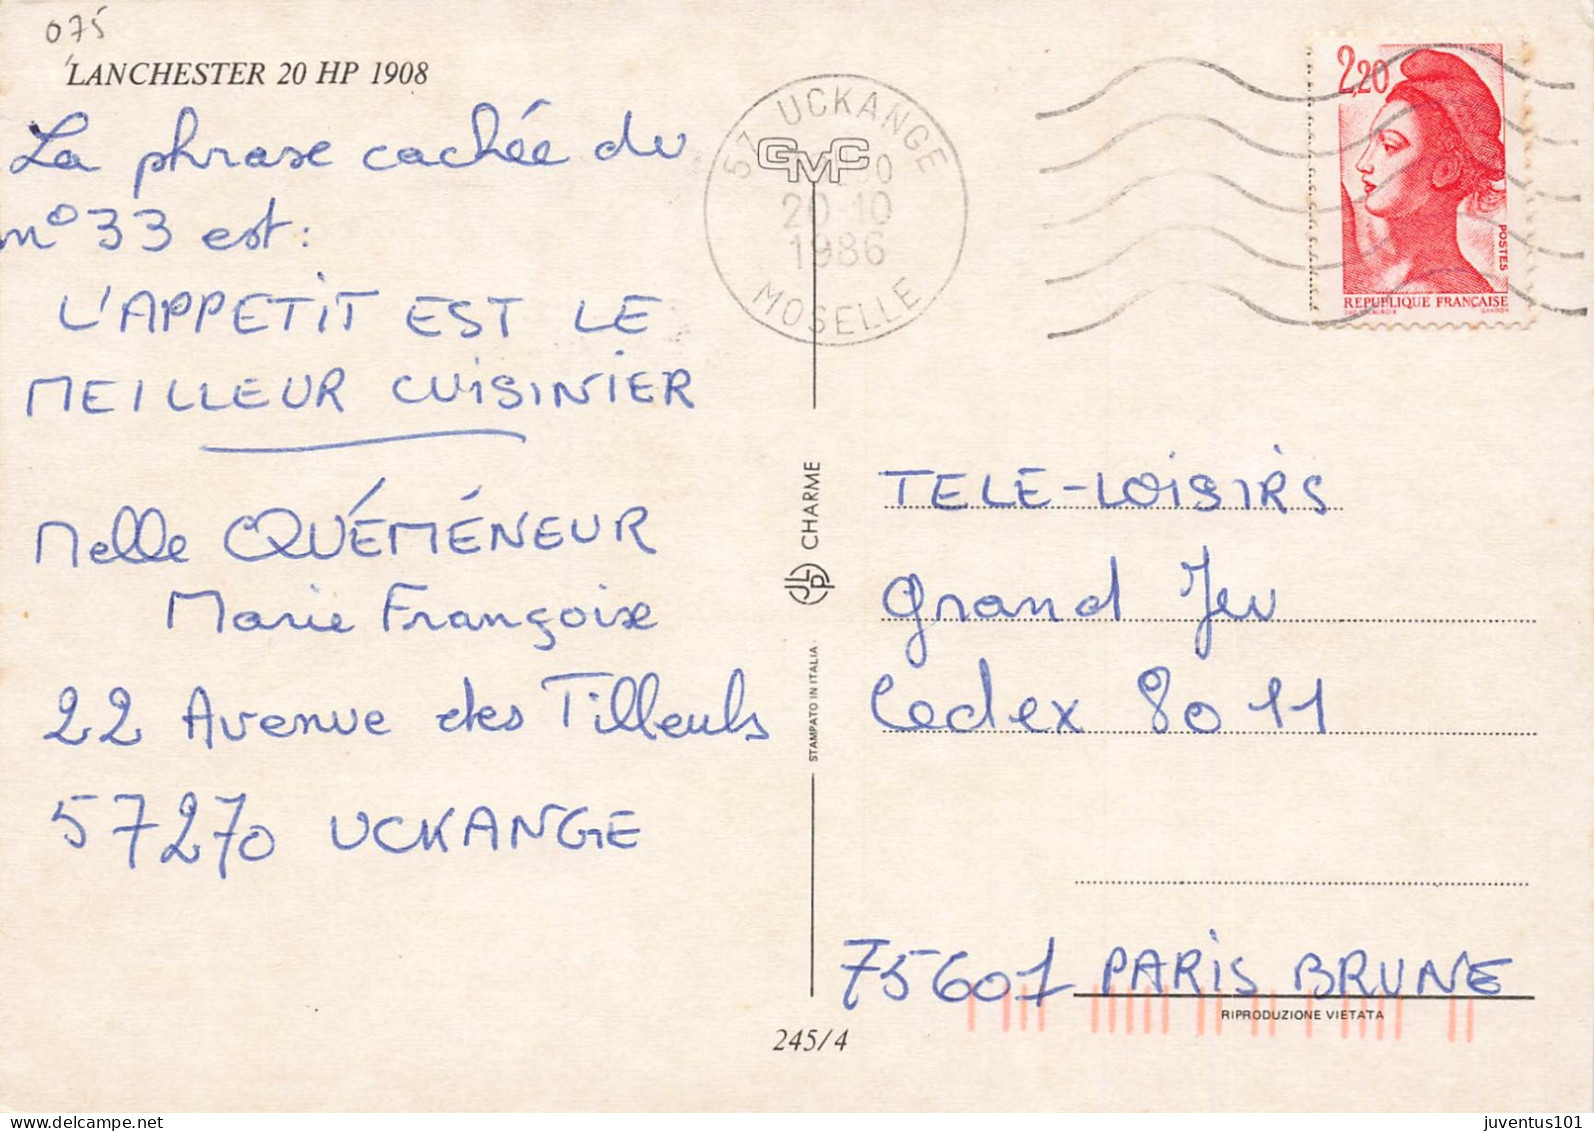 075
LANCHESTER 20 HP 1908
La phrase cachée du
n° 33 est:
L'APPETIT EST LE
MEILLEUR CUISINIER
Melle QUÉMÉNEUR
Marie Françoise
22 Avenue des Tilleuls
57270 UCKANGE
57 UCKANGE
GMC
20 10
1986
MOSELLE
2,20
POSTES
REPUBLIQUE FRANÇAISE
GANDON
CHARME
STAMPATO IN ITALIA
TELE-LOISIRS
Grand Jeu
Cedex 8011
75601 PARIS BRUNE
RIPRODUZIONE VIETATA
245/4
juventus101